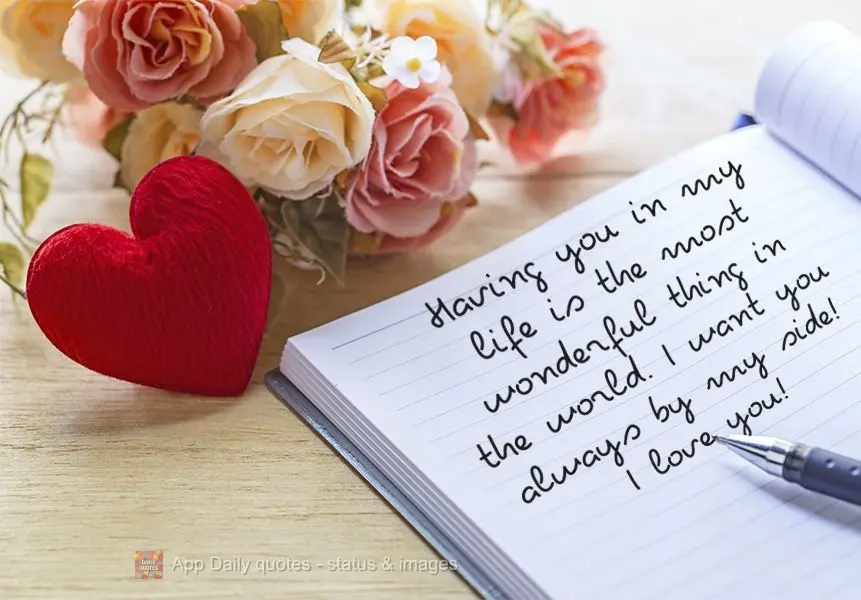 Having you in my
life is the most
wonderful thing in
the world. I want you
always by my side!
I love you!
DAILY QUOTES
App Daily quotes - status & images